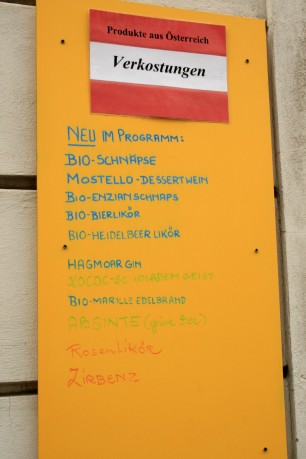 Produkte aus Österreich
Verkostungen
NEU IM PROGRAMM:
BIO-SCHNÄPSE
MOSTELLO-DESSERTWEIN
BIO-ENZIANSCHNAPS
BIO-BIERLIKÖR
BIO-HEIDELBEER LIKÖR
HAGMOAR GIN
BIO-MARILLE EDELBRAND
ABGINTE
Rosenlikör
ZIRBENZ